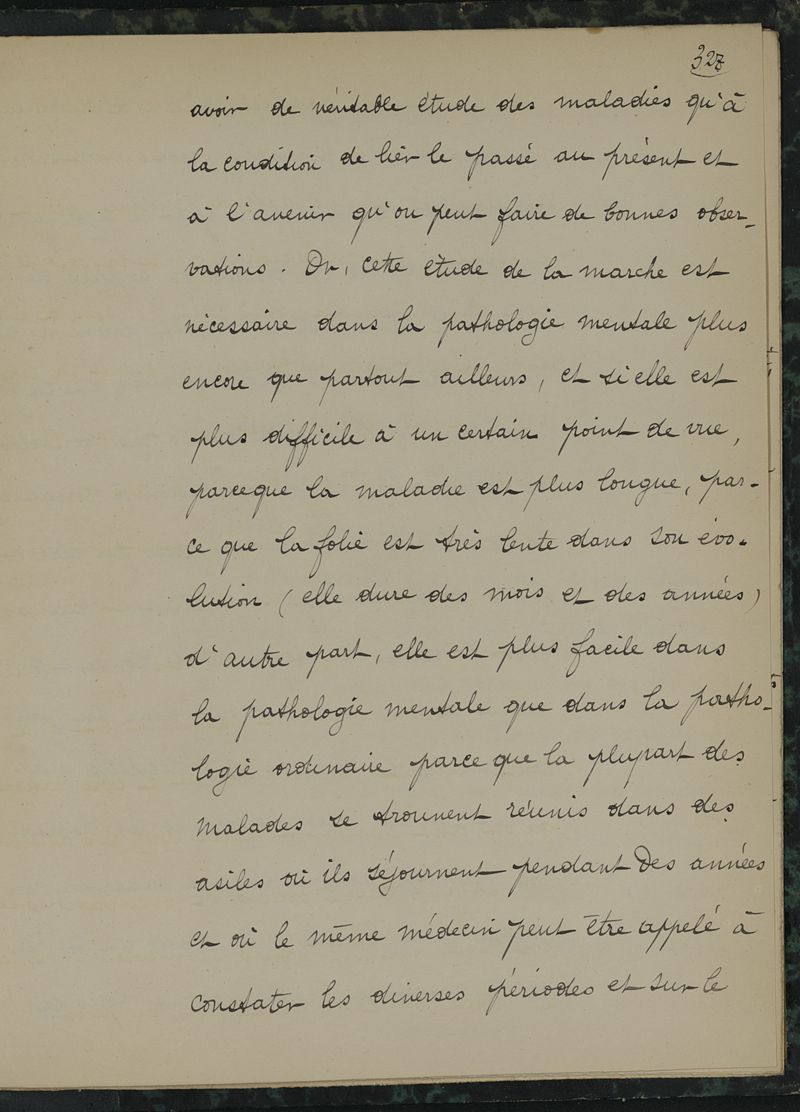 327
avoir de véritable étude des maladies qu'à
la condition de lier le passé au présent et
à l'avenir qu'on peut faire de bonnes obser-
vations. Or, cette étude de la marche est
nécessaire dans la pathologie mentale plus
encore que partout ailleurs, et si elle est
plus difficile à un certain point de vue,
parceque la maladie est plus longue, par-
ce que la folie est très lente dans son évo-
lution (elle dure des mois et des années)
d'autre part, elle est plus facile dans
la pathologie mentale que dans la patho-
logie ordinaire parce que la plupart des
malades se trouvent réunis dans des
asiles où ils séjournent pendant des années
et où le même médecin peut être appelé à
constater les diverses périodes et sur le